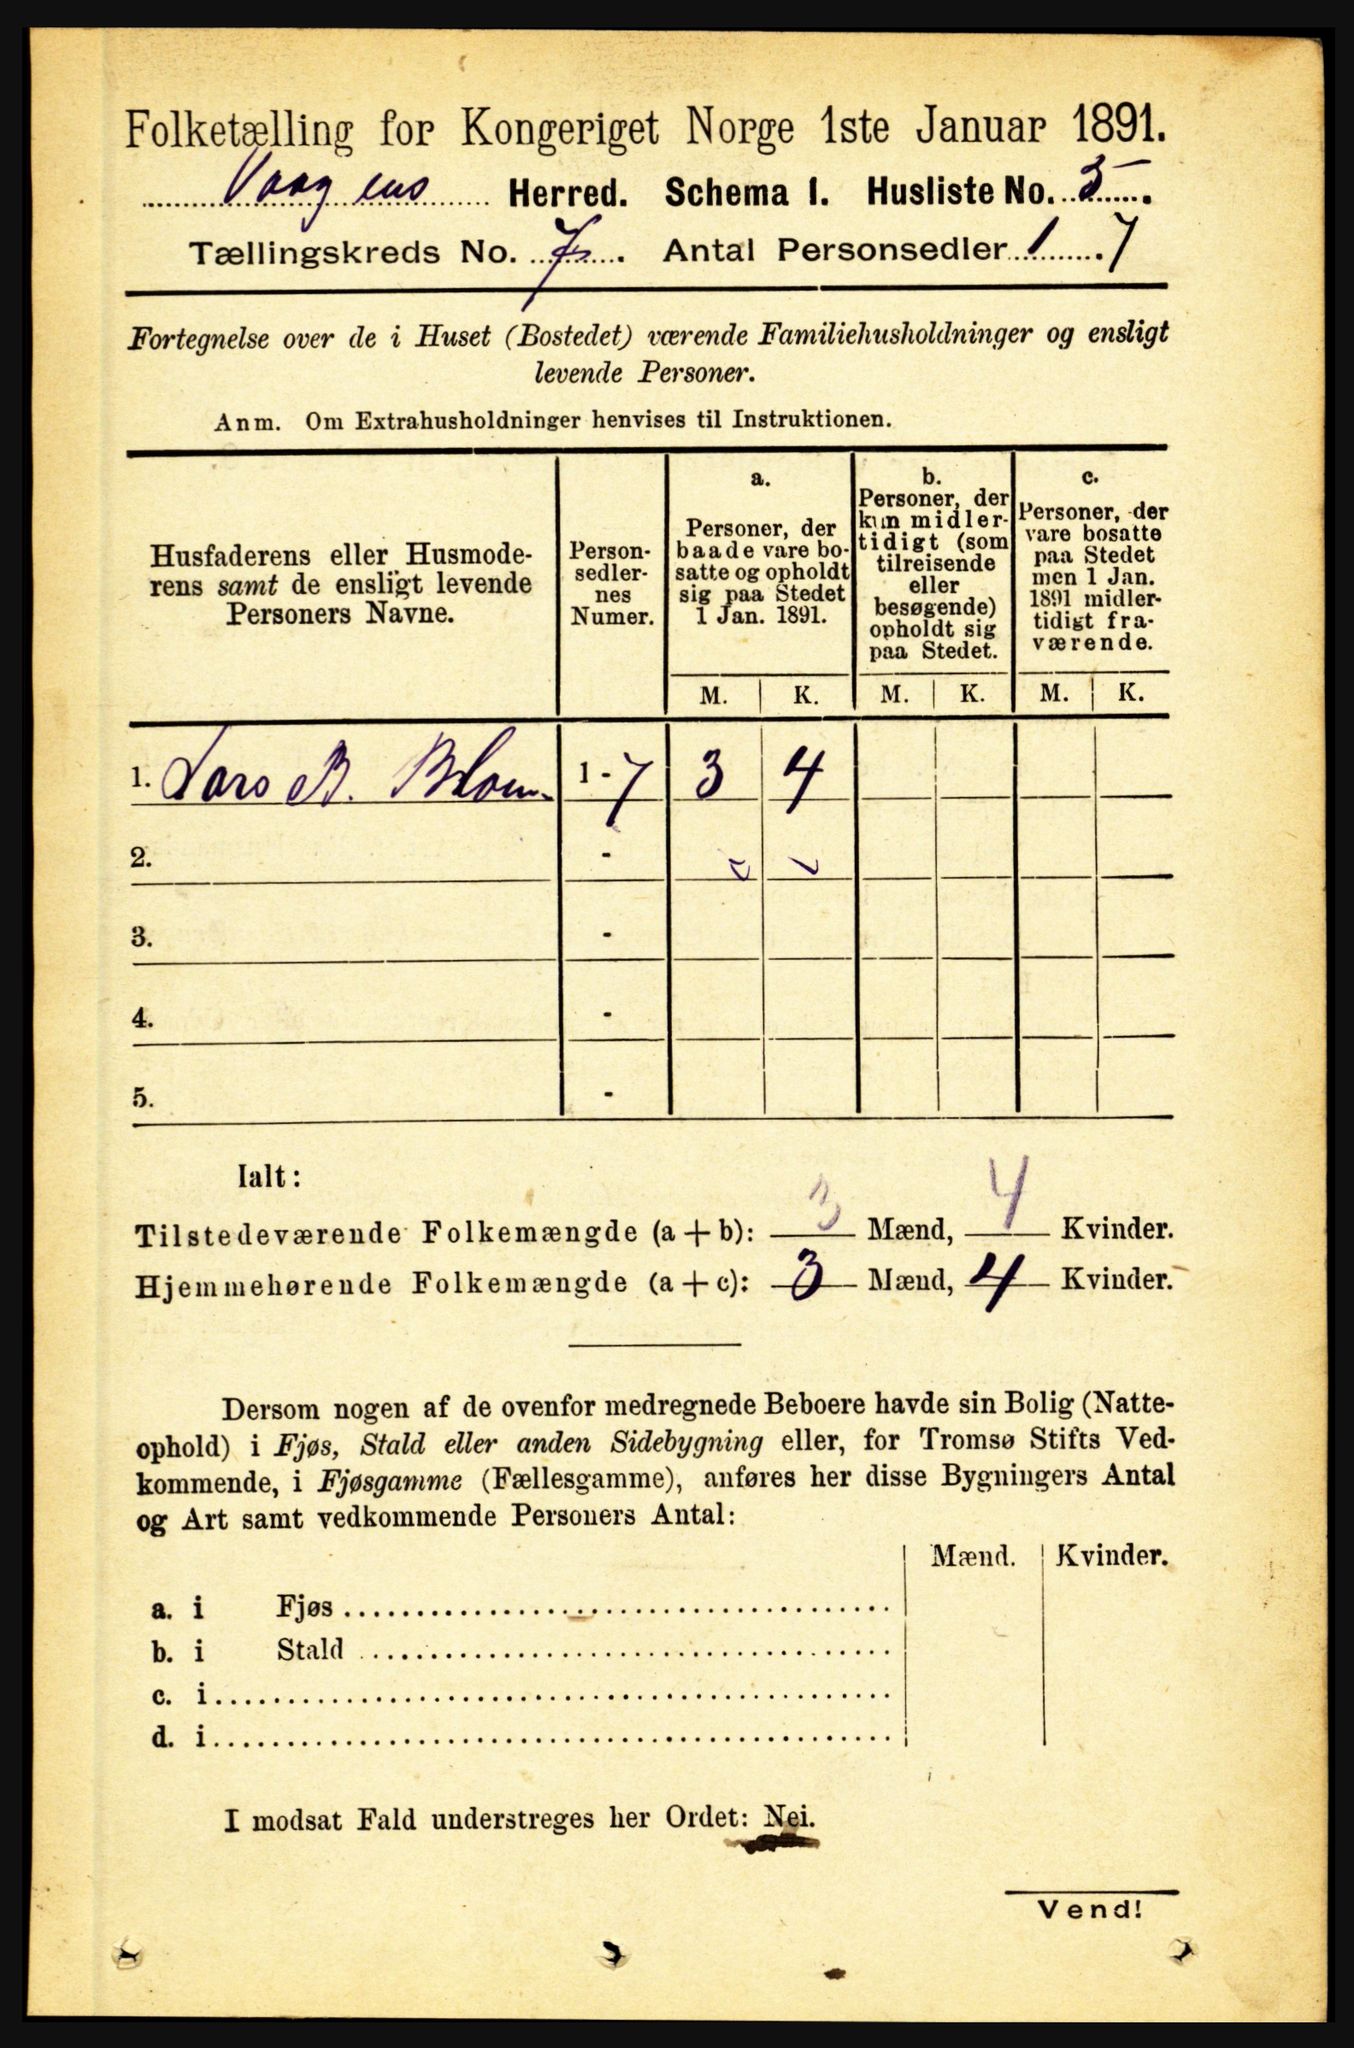 Folketælling for Kongeriget Norge 1ste Januar 1891.
Vaagens Herred. Schema 1. Husliste No. 5.
Tællingskreds No. 7. Antal Personsedler 1 7
Fortegnelse over de i Huset (Bostedet) værende Familiehusholdninger og ensligt
levende Personer.
Anm. Om Extrahusholdninger henvises til Instruktionen.
Husfaderens eller Husmode-
rens samt de ensligt levende
Personers Navne.
Person-
sedler-
nes
Numer.
a.
Personer, der
baade vare bo-
satte og opholdt
sig paa Stedet
1 Jan. 1891.
b.
Personer, der
kun midler-
tidigt (som
tilreisende
eller
besøgende)
opholdt sig
paa Stedet.
c.
Personer, der
vare bosatte
paa Stedet
men 1 Jan.
1891 midler-
tidigt fra-
værende.
M. K. M. K. M. K.
1. Lars B. Blom 1 - 7 3 4
2. -
3. -
4. -
5. -
Ialt:
Tilstedeværende Folkemængde (a + b): 3 Mænd, 4 Kvinder.
Hjemmehørende Folkemængde (a + c): 3 Mænd, 4 Kvinder.
Dersom nogen af de ovenfor medregnede Beboere havde sin Bolig (Natte-
ophold) i Fjøs, Stald eller anden Sidebygning eller, for Tromsø Stifts Ved-
kommende, i Fjøsgamme (Fællesgamme), anføres her disse Bygningers Antal
og Art samt vedkommende Personers Antal:
Mænd. Kvinder.
a. i Fjøs
b. i Stald
c. i
d. i
I modsat Fald understreges her Ordet: Nei.
Vend!